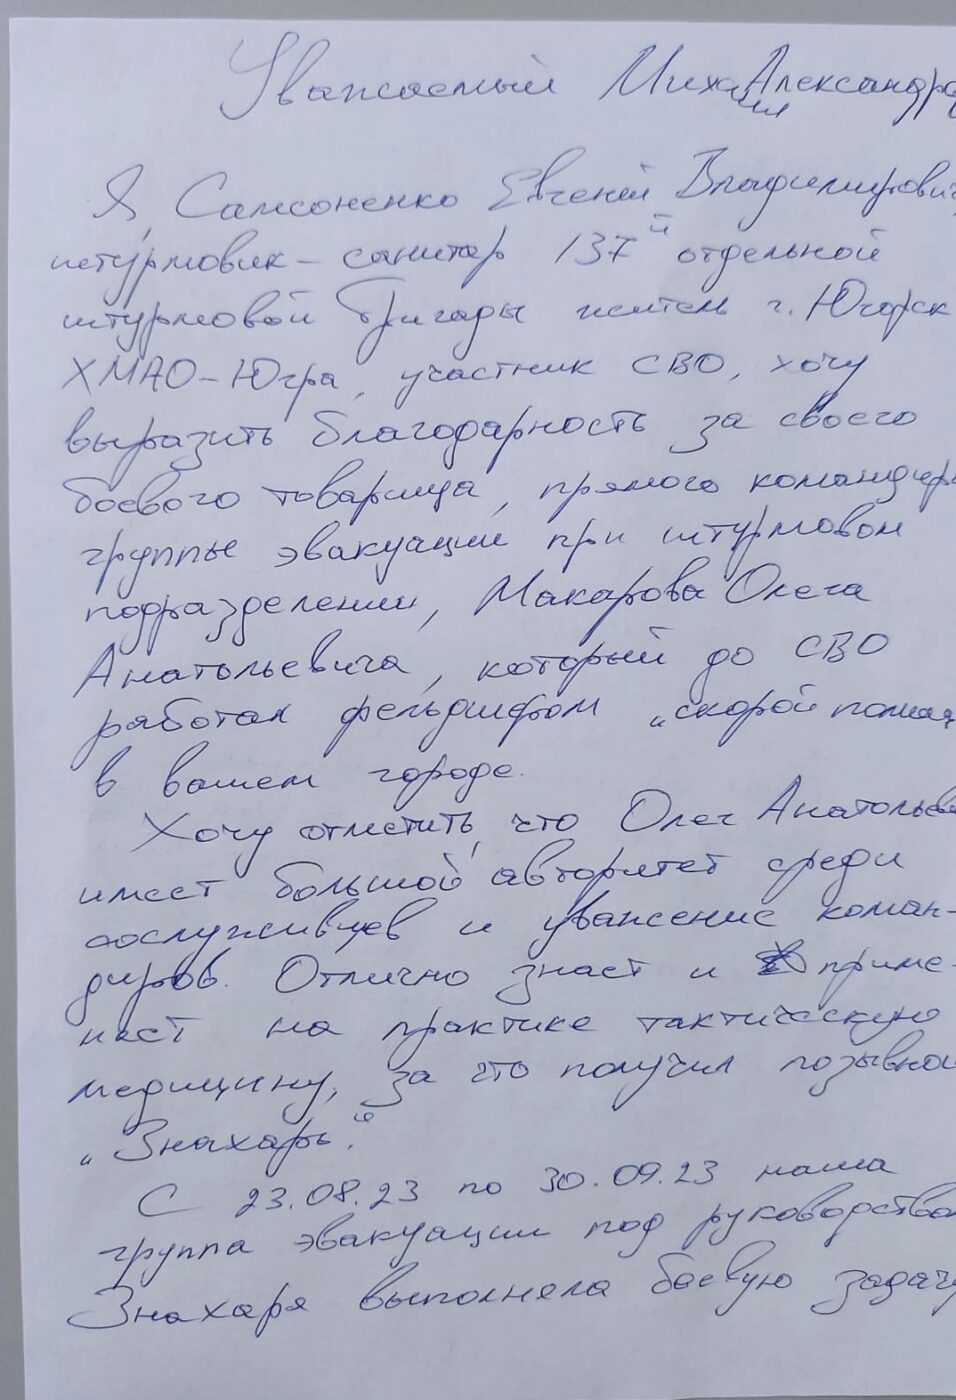 Уважаемый Михаил Александро
Я, Самсоненко Евгений Владимирович,
штурмовик-санитар 137й отдельной
штурмовой бригады житель г. Югорск
ХМАО-Югра, участник СВО, хочу
выразить благодарность за своего
боевого товарища, прямого командира
группы эвакуации при штурмовом
подразделении, Макарова Олега
Анатольевича, который до СВО
работал фельдшером „скорой помощ
в вашем городе.
Хочу отметить, что Олег Анатольев
имеет большой авторитет среди
сослуживцев и уважение коман-
диров. Отлично знает и приме-
няет на практике тактическую
медицину, за что получил позывной
„Знахарь".
С 23.08.23 по 30.09.23 наша
группа эвакуации под руководством
Знахаря выполняла боевую задачу